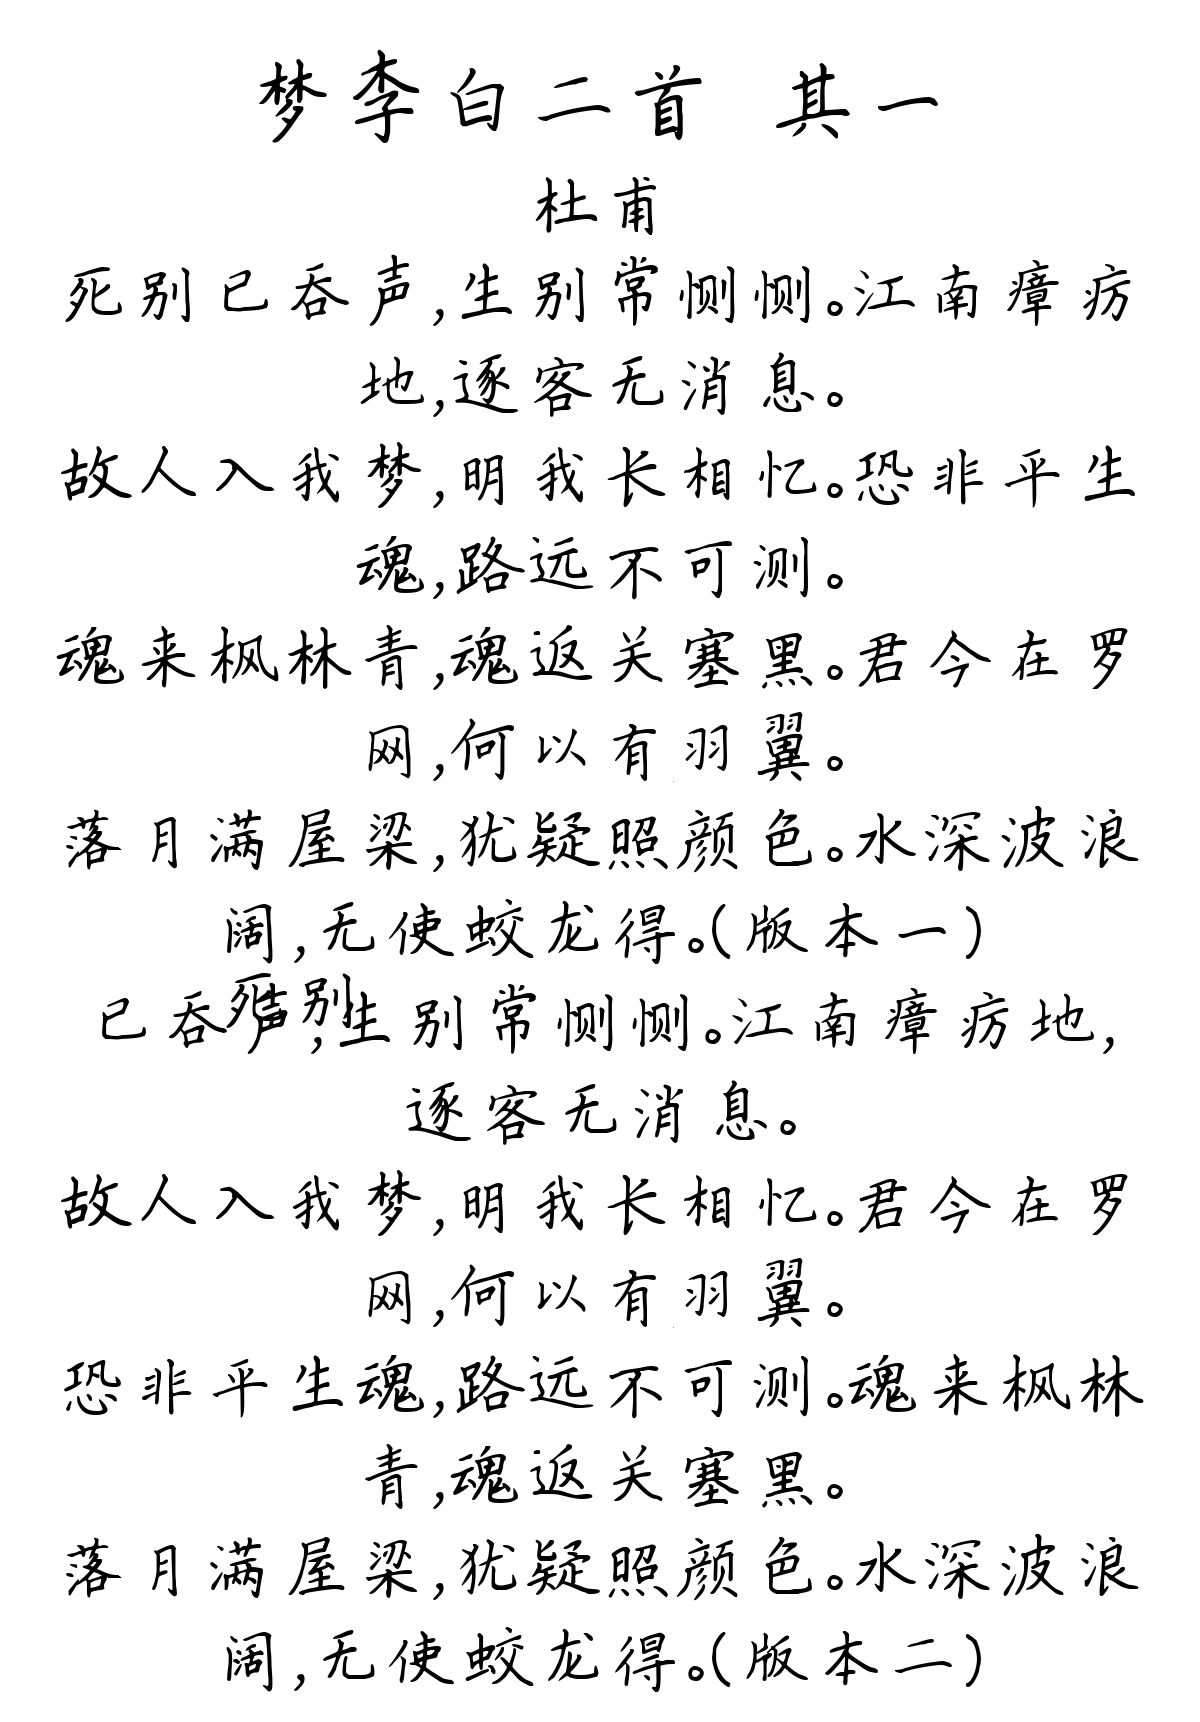 梦李白二首 其一
杜甫
死别已吞声,生别常恻恻。江南瘴疠
地,逐客无消息。
故人入我梦,明我长相忆。恐非平生
魂,路远不可测。
魂来枫林青,魂返关塞黑。君今在罗
网,何以有羽翼。
落月满屋梁,犹疑照颜色。水深波浪
阔,无使蛟龙得。(版本一)
死别
已吞声,生别常恻恻。江南瘴疠地,
逐客无消息。
故人入我梦,明我长相忆。君今在罗
网,何以有羽翼。
恐非平生魂,路远不可测。魂来枫林
青,魂返关塞黑。
落月满屋梁,犹疑照颜色。水深波浪
阔,无使蛟龙得。(版本二)